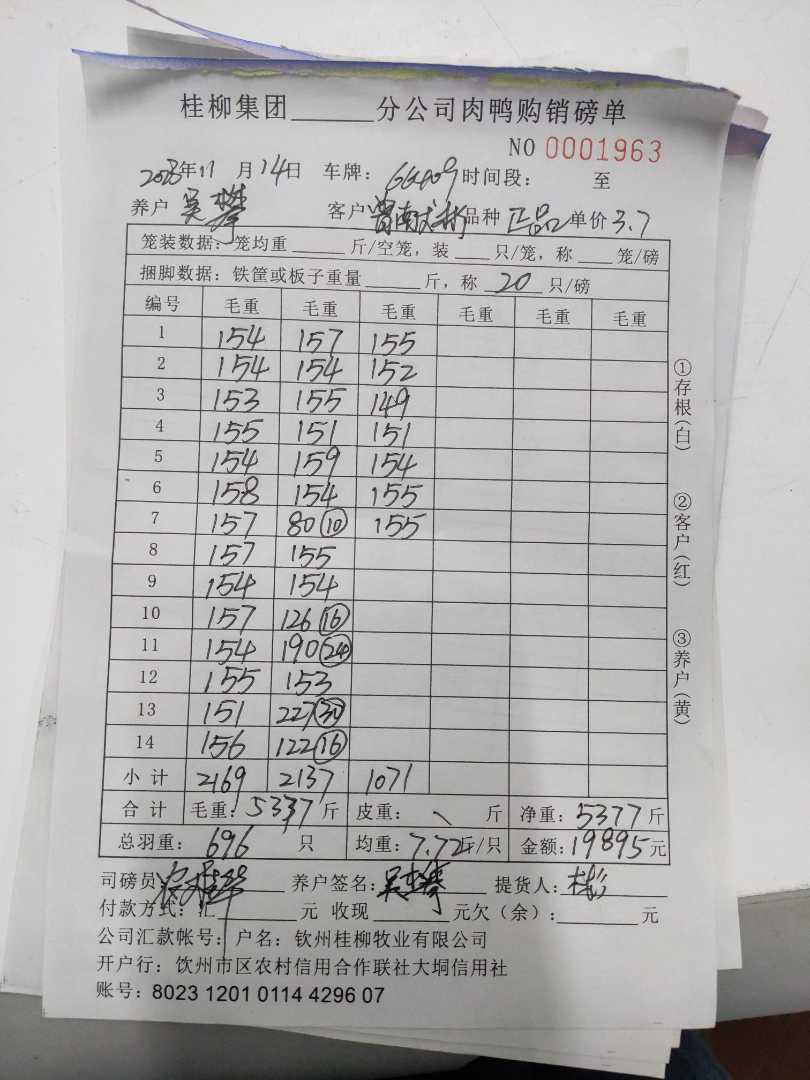 桂柳集团______分公司肉鸭购销磅单
NO 0001963
2023年11月14日 车牌: 时间段: 至
养户 吴攀 客户 曾献彬 品种 正品 单价 3.7
笼装数据: 笼均重 ____ 斤/空笼, 装 ___ 只/笼, 称 ___ 笼/磅
捆脚数据: 铁筐或板子重量 ____ 斤, 称 20 只/磅
编号 毛重 毛重 毛重 毛重 毛重 毛重
1 154 157 155
2 154 154 152
3 153 155 149
4 155 151 151
5 154 159 154
6 158 154 155
7 157 80⑩ 155
8 157 155
9 154 154
10 157 126⑯
11 154 190㉔
12 155 153
13 151 227
14 156 122⑯
小计 2169 2137 1071
合计 毛重: 5377 斤 皮重: \ 斤 净重: 5377 斤
总羽重: 696 只 均重: 7.72斤/只 金额: 19895元
司磅员 养户签名: 吴攀 提货人: 彬
付款方式: 汇______元 收现______元欠(余):______元
公司汇款帐号: 户名: 钦州桂柳牧业有限公司
开户行: 钦州市区农村信用合作联社大垌信用社
账号: 8023 1201 0114 4296 07
①存根(白)
②客户(红)
③养户(黄)